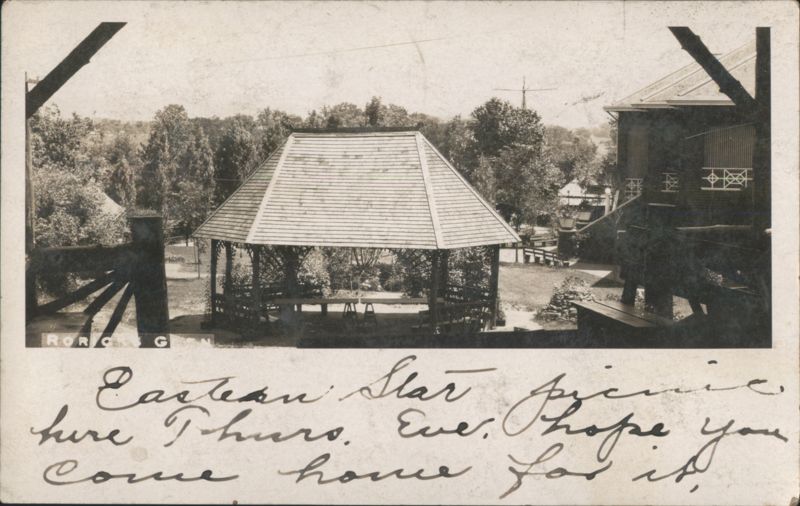 RORICKS GLEN
Eastern Star picnic
here Thurs. Eve. hope you
come home for it,